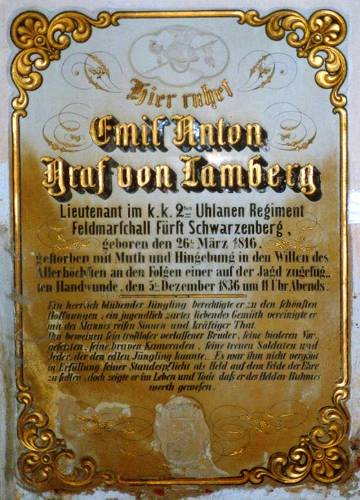 Hier ruhet
Emil Anton
Graf von Lamberg
Lieutenant im k.k. 2ten Uhlanen Regiment
Feldmarschall Fürst Schwarzenberg,
geboren den 26t März 1816.
gestorben mit Muth und Hingebung in den Willen des
Allerhöchsten an den Folgen einer auf der Jagd zugefüg-
ten Handwunde, den 5t Dezember 1836 um 11 Uhr Abends.
Ein herrlich blühender Jüngling berechtigte er zu den schönsten
Hoffnungen, ein jugendlich zartes liebendes Gemüth vereinigte er
mit des Mannes reifen Sinnen und kräftiger That.
Ihn beweinen sein trostloser verlassener Bruder, seine biederen Vor-
gesetzten, seine braven Kameraden, seine treuen Soldaten und
Jeder, der den edlen Jüngling kannte. Es war ihm nicht vergönnt
in Erfüllung seiner Standespflicht als Held auf dem Felde der Ehre
zu fallen, doch zeigte er im Leben und Tode, daß er des Helden Ruhmes
werth gewesen.